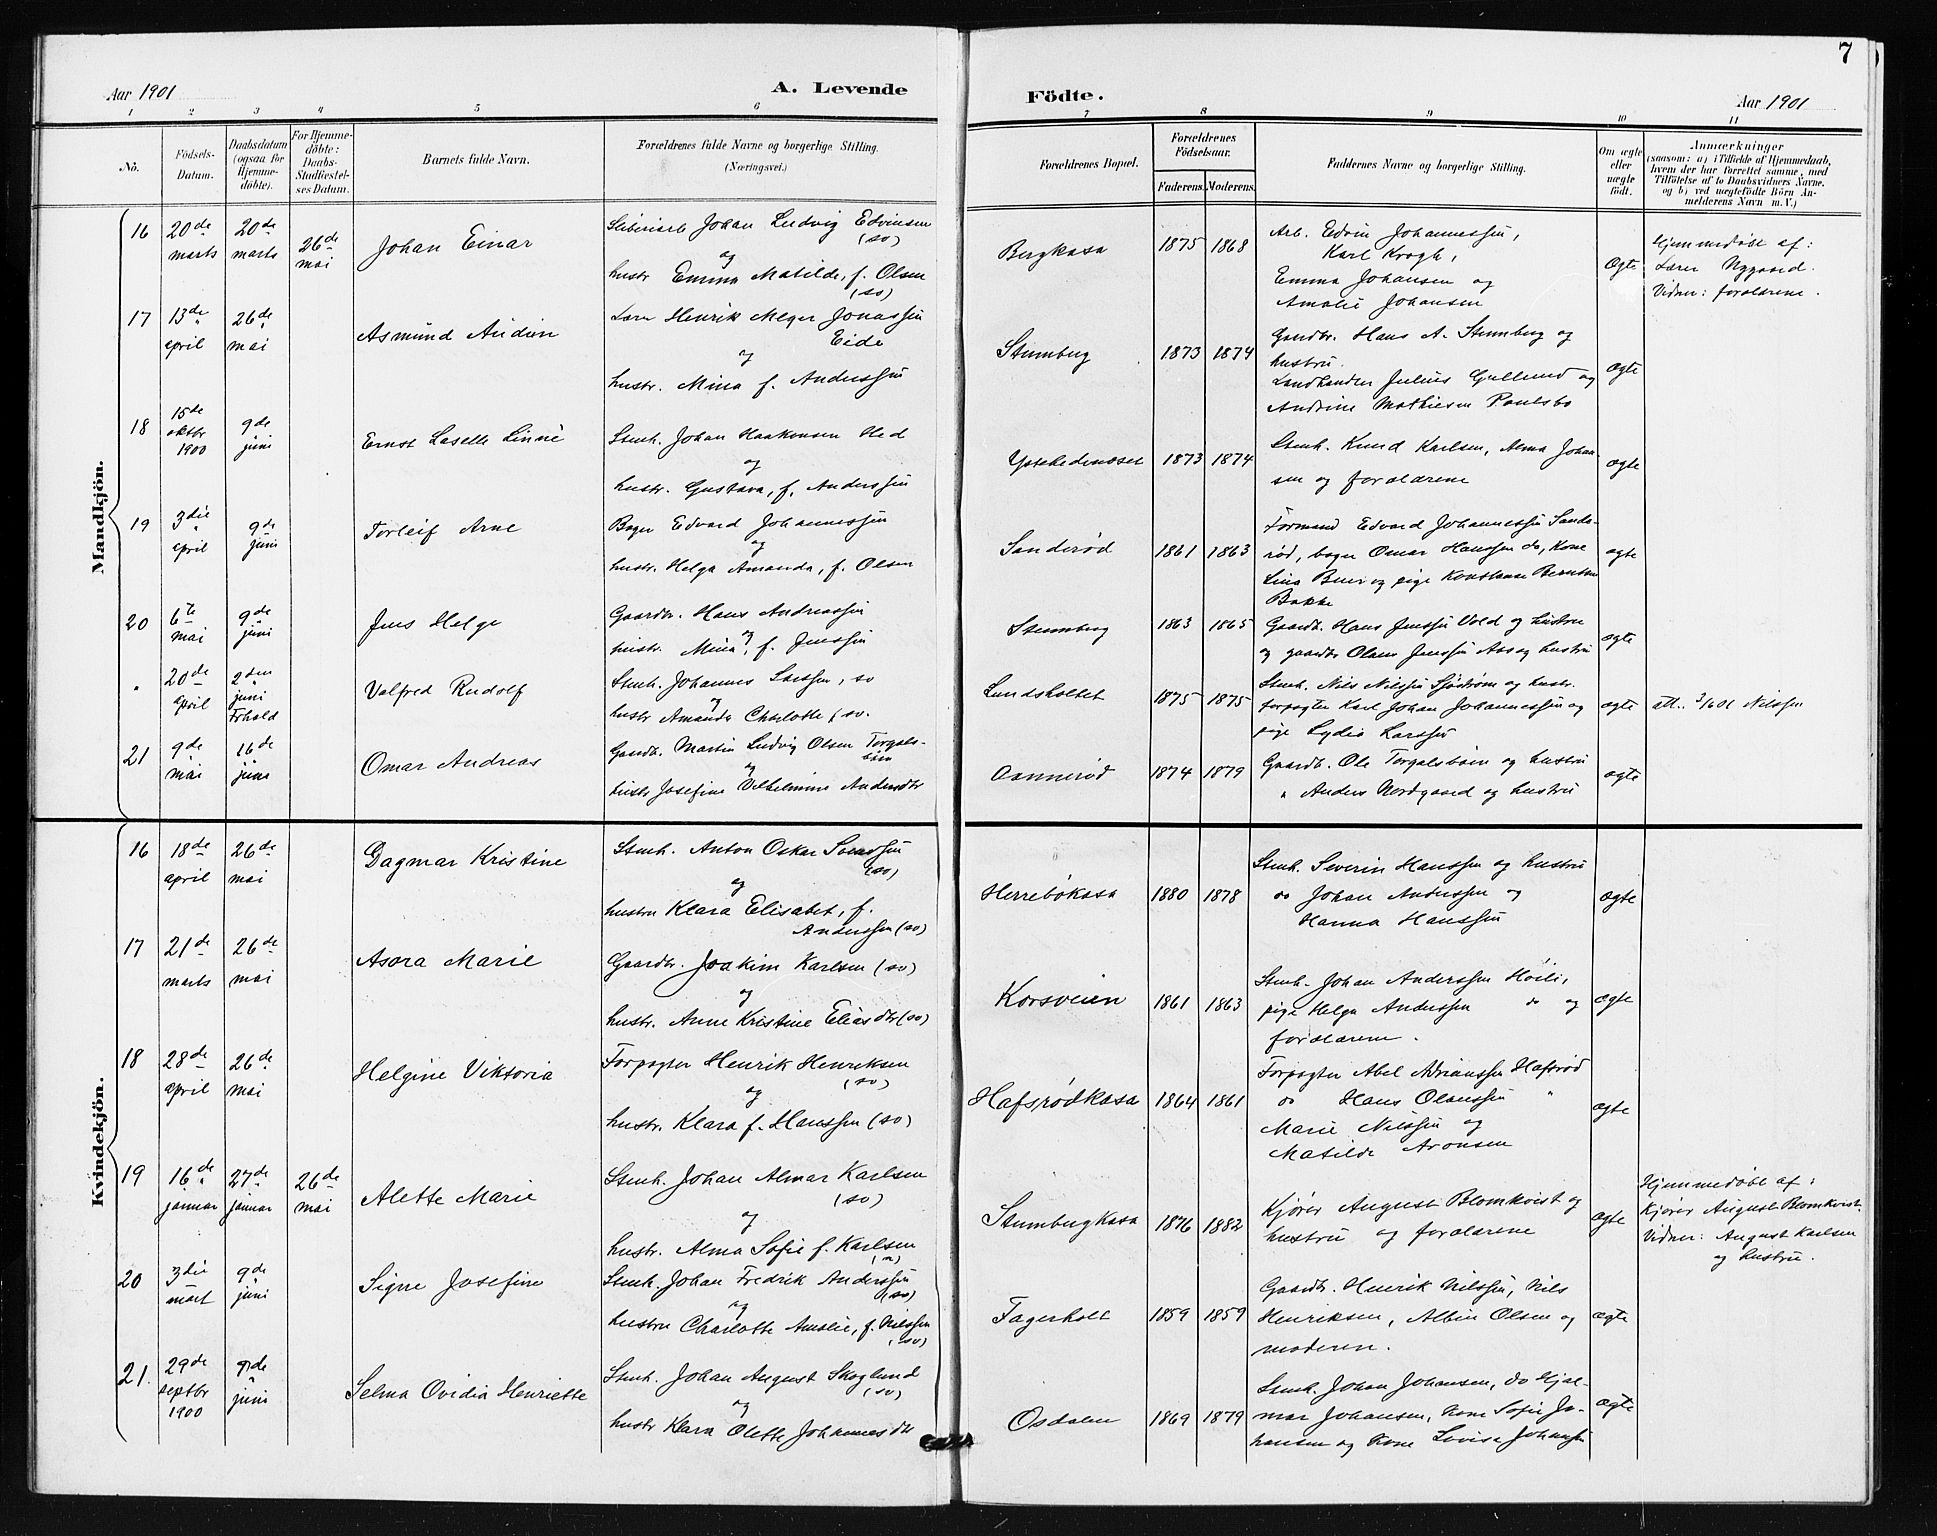 7
Aar 1901
A. Levende
Födte.
Aar 1901
1 2 3 4 5 6 7 8 9 10 11
No.
Födsels-
Datum.
Daabsdatum
(ogsaa for
Hjemme-
döbte).
For Hjemme-
döbte:
Daabs-
Stadfæstel-
ses Datum.
Barnets fulde Navn.
Forældrenes fulde Navne og borgerlige Stilling.
(Næringsvei.)
Forældrenes Bopæl.
Forældrenes
Födselsaar.
Faderens. Moderens.
Faddernes Navne og borgerlige Stilling.
Om ægte
eller
uægte
födt.
Anmærkninger
(saasom: a) i Tilfælde af Hjemmedaab,
hvem der har forrettet samme, med
Tilföielse af to Daabsvidners Navne.
og b) ved uægtefödte Börn An-
melderens Navn m. V.)
Mandkjön.
16
20de
marts
20de
marts
26de
mai
Johan Einar
Johan Ludvig Edvinsen
(so)
og
hustr Emma Matilde, f. Olsen
(so)
Bergkasa
1875 1868
Arb. Edvin Johannessen,
Karl Krogh,
Emma Johansen og
Amalie Johansen
ægte
Hjemmedøbt af:
Lærer Nygaard.
Vidner: forældrene.
17
13de
april
26de
mai
Asmund Audun
Lærer Henrik Meyer Jonassen
Eide
og
hustr. Mina f. Anderssen
Stumberg
1873 1874
Gaardbr. Hans A. Stumberg og
hustru.
Landhandler Julius Gullund og
Andrine Mathiesen Paulsbo
ægte
18
15de
oktbr
1900
9de
juni
Ernst Laselle Linné
Stenh. Johan Haakonsen Hed
og
hustr. Gustava, f. Anderssen
Ystehedemoset
1873 1874
Stenh. Knud Karlsen, Alma Johan-
sen og forældrene
ægte
19
3die
april
9de
juni
Torleif Arne
Bager Edvard Johannessen
og
hustr. Helga Amanda, f. Olsen
Sanderød
1861 1863
Formand Edvard Johannessen Sande-
rød, bager Omar Hanssen do, Kone
Lina Buer og pige Konstanse Berntsen
Bakke
ægte
20
6te
mai
9de
juni
Jens Helge
Gaardbr. Hans Andreassen
og
hustr. Mina, f. Jenssen
Stumberg
1863 1865
Gaardb. Hans Jenssen Vold og hustru
og gaardbr Olaus Jenssen Aas og hustru
ægte
"
20de
april
2den
juni
Frhald
Valfred Rudolf
Stenh. Johannes Larssen, so
og
hustr Amanda Charlotte (so.
Lundsholtet
1875 1875
Stenh. Nils Nilssen Sjöström og hustr.
forpagter Karl Johan Johannessen og
pige Lydia Larssen
ægte
att. 3/6 01 Nilssen
21
9de
mai
16de
juni
Omar Andreas
Gaardb. Martin Ludvig Olsen Torgals-
bøen
og
hustr Josefine Vilhelmine Andersdtr
1874 1879
Gaardb. Ole Torgalsbøen og hustru
" Anders Nordgaard og hustru
ægte
Kvindekjön.
16
18de
april
26de
mai
Dagmar Kristine
Stenh. Anton Oskar Svenssen
(so)
og
hustru Klara Elisabet, f.
Anderssen (so)
Herrebökasa
1880 1878
Stenh. Severin Hanssen og hustru
do Johan Anderssen og
Hanna Hanssen
ægte
17
21de
marts
26de
mai
Asora Marie
Gaardbr. Joakim Karlsen (so)
og
hustr. Anne Kristine Eliasdtr (so)
Korsveien
1861 1863
Stenh. Johan Anderssen Høili,
pige Helga Anderssen do og
forældrene.
ægte
18
28de
april
26de
mai
Helgine Viktoria
Forpagter Henrik Henriksen
(so)
og
hustr. Klara f. Hanssen (so)
Hafsrødkasa
1864 1861
Forpagter Abel Adrianssen Hafsrød
do Hans Olaussen "
Marie Nilssen og
Matilde Aronsen
ægte
19
16de
januar
27de
januar
26de
mai
Alette Marie
Stenh. Johan Almar Karlsen
(so)
og
hustr. Alma Sofie f. Karlsen
(so)
Stumbergkasa
1876 1882
Kjører August Blomkvist og
hustru og forældrene
ægte
Hjemmedøbt af:
Kjører August Blomkvist
Vidner: August Karlsen
og hustru.
20
3die
mart
9de
juni
Signe Josefine
Stenh. Johan Fredrik Anderssen
(so)
og
hustru Charlotte Amalie, f. Nilssen
(so)
Fagerholt
1859 1859
Gaardb. Henrik Nilssen, Nils
Henriksen, Albin Olsen og
moderen.
ægte
21.
29de
septbr
1900
9de
juni
Selma Ovidia Henriette
Stenh. Johan August Skoglund
(so)
og
hustr Klara Olette Johannesdtr
Osdalen
1869 1879
Stenh. Johan Johansen, do Hjal-
mar Johansen, Kone Sofie Jo-
hansen og Kone Lovise Johansen
ægte